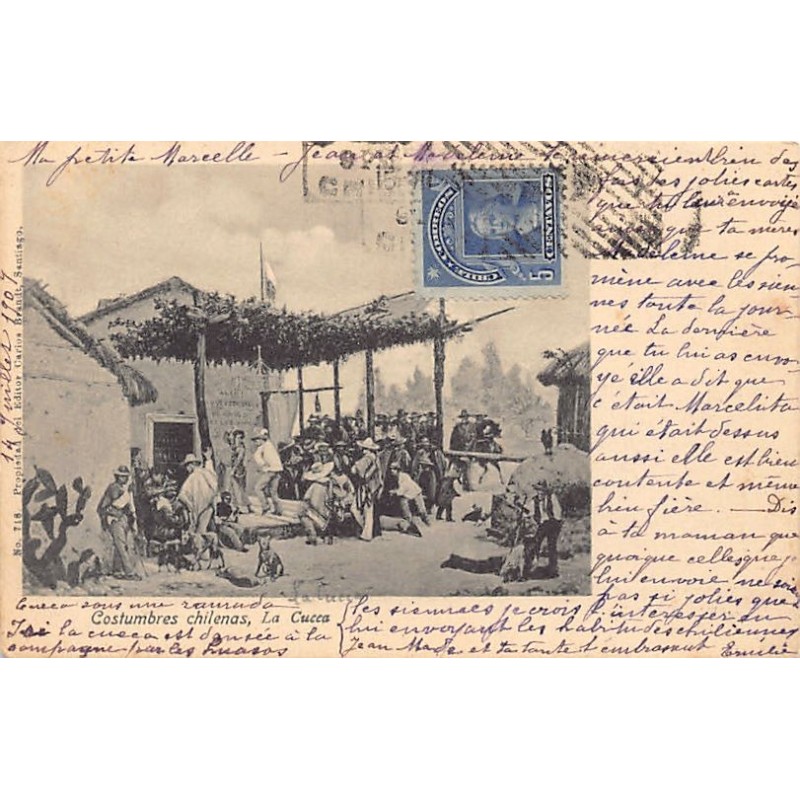 Ma petite Marcelle – Jean et Madeleine te remercient bien des
fois des jolies cartes
que tu leur envoie
ainsi que ta mère
Madeleine se pro-
mène avec les sien-
nes toute la jour-
née La dernière
que tu lui as envo-
yé elle a dit que
c'était Marcelita
qui était dessus
aussi elle est bien
contente et même
bien fière. — Dis
à ta maman que
quoique celles que je
lui envoie ne soie
pas si jolies que
les siennes je crois l'intéresser en
lui envoyant les habitudes chiliennes
Jean Made et ta tante t'embrassent Emilie
14 Juillet 1907
No. 718 Propiedad del Editor Carlos Brandt, Santiago.
CORREOS
CHILE
5 CENTAVOS 5
La cueca
Cueca sous une ramada
Costumbres chilenas, La Cueca
Ici la cueca est dansée à la
campagne par les huasos